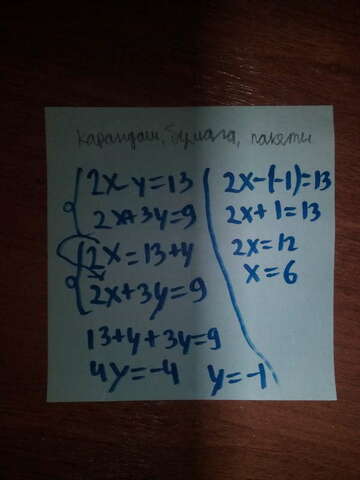 карандаш, бумага, пакеты
2x-y=13
2x+3y=9
2x=13+y
2x+3y=9
13+y+3y=9
4y=-4 y=-1
2x-(-1)=13
2x+1=13
2x=12
x=6